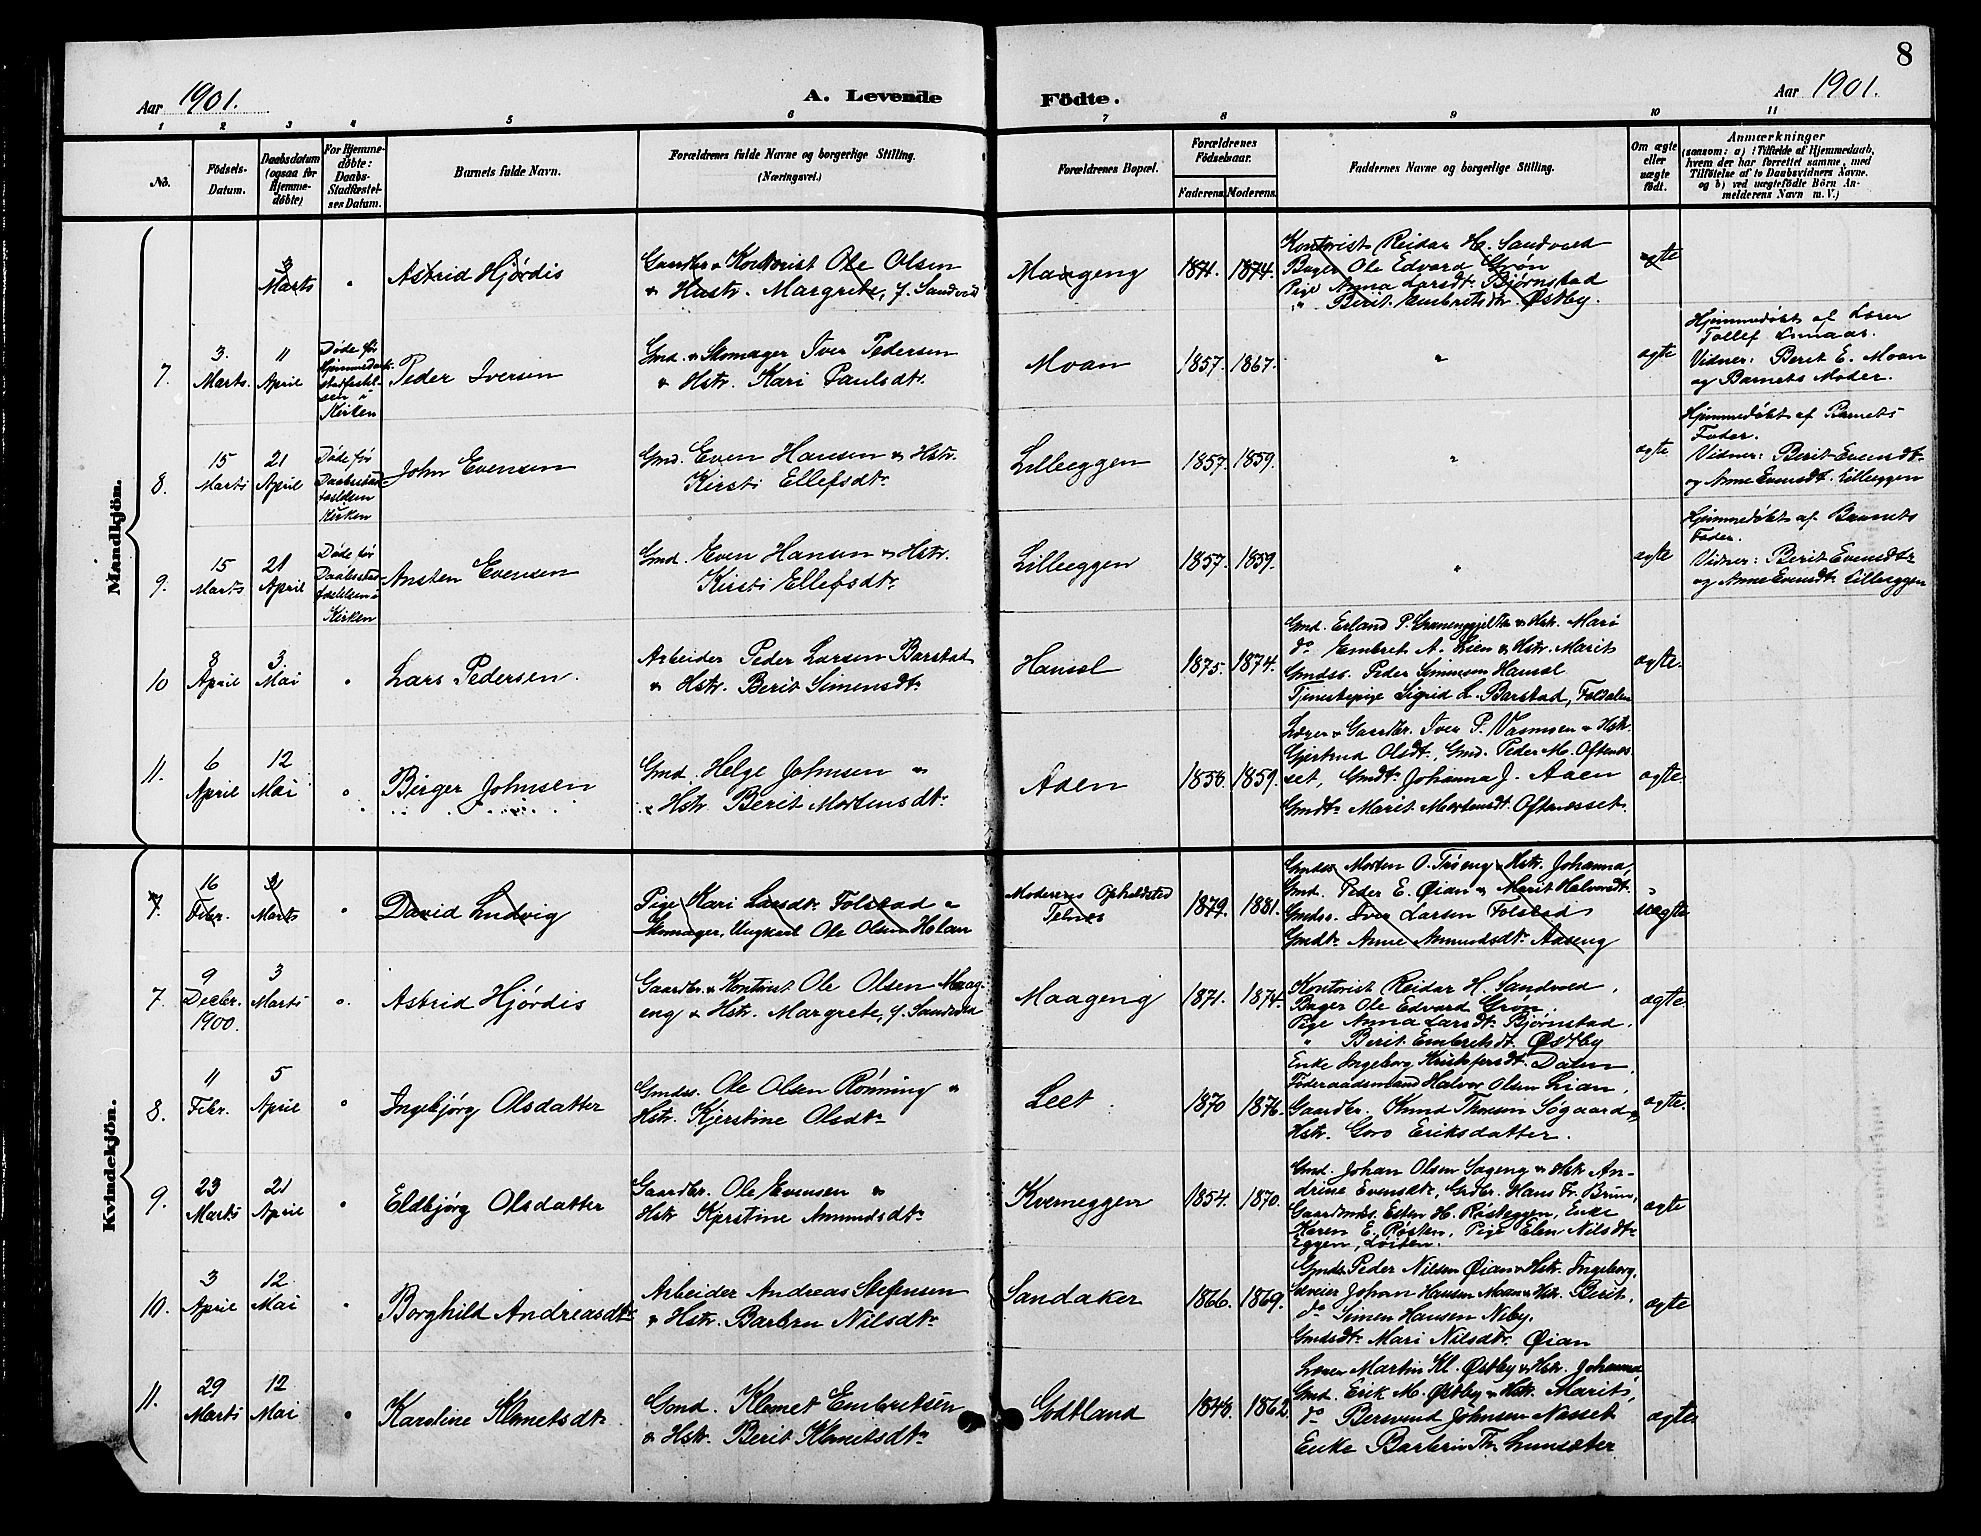 8
Aar 1901.
A. Levende Födte.
Aar 1901.
1 2 3 4 5 6 7 8 9 10 11
No.
Födsels-Datum.
Daabsdatum (ogsaa for Hjemmedöbte)
For Hjemmedöbte: Daabs-Stadfæstelses Datum.
Barnets fulde Navn.
Forældrenes fulde Navne og borgerlige Stilling.
(Næringsvei.)
Forældrenes Bopæl.
Forældrenes Födselsaar.
Faderens. Moderens.
Faddernes Navne og borgerlige Stilling.
Om ægte eller uægte födt.
Anmærkninger
(saasom: a) i Tilfælde af Hjemmedaab,
hvem der har forrettet samme, med
Tilföielse af to Daabsvidners Navne.
og b) ved uægtefödte Börn An-
melderens Navn m. V.)
Mandkjön.
3 Marts " Astrid Hjørdis
Gaardbr. & Kontorist Ole Olsen
& Hustr. Margrete, f. Sandvold
Maageng 1871. 1874.
Kontorist Reidar H. Sandvold
Bager Ole Edvard Grøn
Pige Anna Larsdtr Bjørnstad
" Berit Embretsdtr. Østby.
ægte
7. 3. Marts. " April
Døde før
Hjemmedaabs-
stadfæstel-
sen i
Kirken
Peder Iversen
Gmd. & Skomager Iver Pedersen
& Hstr. Kari Paulsdtr.
Moan 1857. 1867. " ægte
Hjemmedøbt af Lærer
Tollef Enmaar.
Vidner: Berit E. Moan
og Barnets Moder.
8. 15 Marts 21 April
Døde før
Daabsstad-
Kirken
John Evensen
Gmd. Even Hansen & Hstr.
Kirsti Ellefsdtr
Lilleeggen 1857. 1859. " ægte
Hjemmedøbt af Barnets
Fader.
Vidner: Berit Evensdtr
og Anne Evensdtr. Lilleeggen
9. 15 Marts 21 April
Døde før
Daabsstad-
fæstelsen i
Kirken
Ansten Evensen
Gmd. Even Hansen & Hstr.
Kirsti Ellefsdtr
Lilleeggen 1857. 1859. " ægte
Hjemmedøbt af Barnets
Fader.
Vidner: Berit Evensdtr
og Anne Evensdtr. Lilleeggen
10 8 April 3. Mai " Lars Pedersen.
Arbeider Peder Larsen Barstad
& Hstr. Berit Simensdtr
Hausol 1875. 1874.
Gmd. Erland P. & Hstr. Mari
do Embret A. Lien & Hstr. Marit
Gmdss. Peder Simensen Hausol
Tjenestepige Sigrid L. Barstad, Foldalen
ægte.
11. 6 April 12 Mai " Birger Johnsen
Gmd. Helge Johnsen &
Hstr. Berit Mortensdtr
Aaen 1858. 1859.
Lærer & Gaardbr. Iver P. & Hstr.
Gjertrud Olsdt., Gmd. Peder M. Oftenæs-
set, Gmdtr. Johanna J. Aaen
Gmdtr Marit Mortensdt. Oftenæsset.
ægte
Kvindekjön.
7. 16 Febr. Marts " David Ludvig
Pige Kari Larsdtr. Folstad &
Skomager, Ungkarl Ole Olsen Helan
Moderens Opholdsted
Telnes
1879. 1881.
Gmdss Morten O. Trøeng & Hstr. Johanna,
Gmd. Peder E. Øian & Marit Halvorsdt.
Gmdss. Iver Larsen Folstad
Gmdt. Anne Amundsdtr Aaseng
uægte
7. 9 Decbr. 1900. 3 Marts " Astrid Hjørdis
Gaardbr. & Kontorist Ole Olsen Maag-
eng & Hstr. Margrete, f. Sandvold
Maageng 1871. 1874.
Kontorist Reidar H. Sandvold,
Bager Ole Edvard Grøn,
Pige Anna Larsdtr Bjørnstad,
" Berit Embretsdt. Østby
ægte.
8. 11 Febr. 5 April " Ingebjørg Olsdatter
Gmdss. Ole Olsen Rønning &
Hstr. Kjerstine Olsdtr
Leet. 1870 1876.
Enke Ingeborg Kristofersdt. Dalen,
Føderaadsmand Halvor Olsen Lian,
Gaardbr. Knud Thoresen Søgaard &
Hstr. Goro Eriksdatter.
ægte.
9. 23 Marts 21 April " Eldbjørg Olsdatter
Gaardbr. Ole Evensen &
Hstr Kjerstine Amundsdtr
Kverneggen 1854. 1870.
Gmd. Johan Olsen Sageng & Hstr An-
drine Evensdt., Grdbr. Hans Fr. Brun,
Gaardmds. Esten H. Røsteggen, Enke
Karen E. Røsten, Pige Elen Nilsdtr
Eggen, Løiten.
ægte
10. 3 April 12. Mai " Borghild Andreasdtr
Arbeider Andreas Stefensen
& Hstr. Barbru Nilsdtr
Sandaker 1866. 1869.
Gmds Peder Nilsen Øian & Hstr. Ingeborg,
Selveier Johan Hansen Moan & Hstr. Berit,
do Simen Hansen Neby,
Gmdsdtr Mari Nilsdtr. Øian
ægte
11. 29 Marts 12 Mai " Karoline Klemetsdtr.
Gmd. Klemet Embretsen
& Hstr. Berit Klemetsdtr
Godtland 1848. 1862.
Lærer Martin Kl. Østby & Hstr. Johanna,
Gmd. Erik M. Østby & Hstr. Marit,
do Bersvend Johnsen Næsset
Enke Barbru Th. Lunsæter
ægte